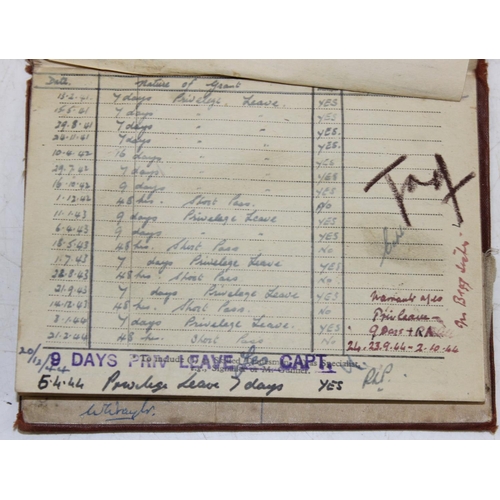 Date. Nature of Grant
15.2.41 7 days Privelege Leave. YES
15.5.41 7 days " " YES.
29.8.41 7 days " " YES.
24.11.41 7 days " " YES.
10.4.42 16 days " " YES.
29.7.42 7 days " " YES
16.10.42 9 days " " YES
1.12.42 48 hrs. Short Pass. No
11.1.43 9 days Privelege Leave YES
6.4.43 9 days " " YES
18.5.43 48 hrs. Short Pass No
1.7.43 7 days Privelege Leave YES
22.8.43 48 hrs Short Pass No
21.9.43 7 days Privelege Leave YES
14.12.43 48 hrs. Short Pass. No
3.1.44 7 days Privelege Leave YES
21.2.44 48 hrs Short Pass No
Warrants
Priv leave
9 DAYS + RA
24.23.9.44 - 2.10.44
20/12/44
9 DAYS PRIV LEAVE CAPT.
To include
5.4.44 Privelege Leave 7 days YES